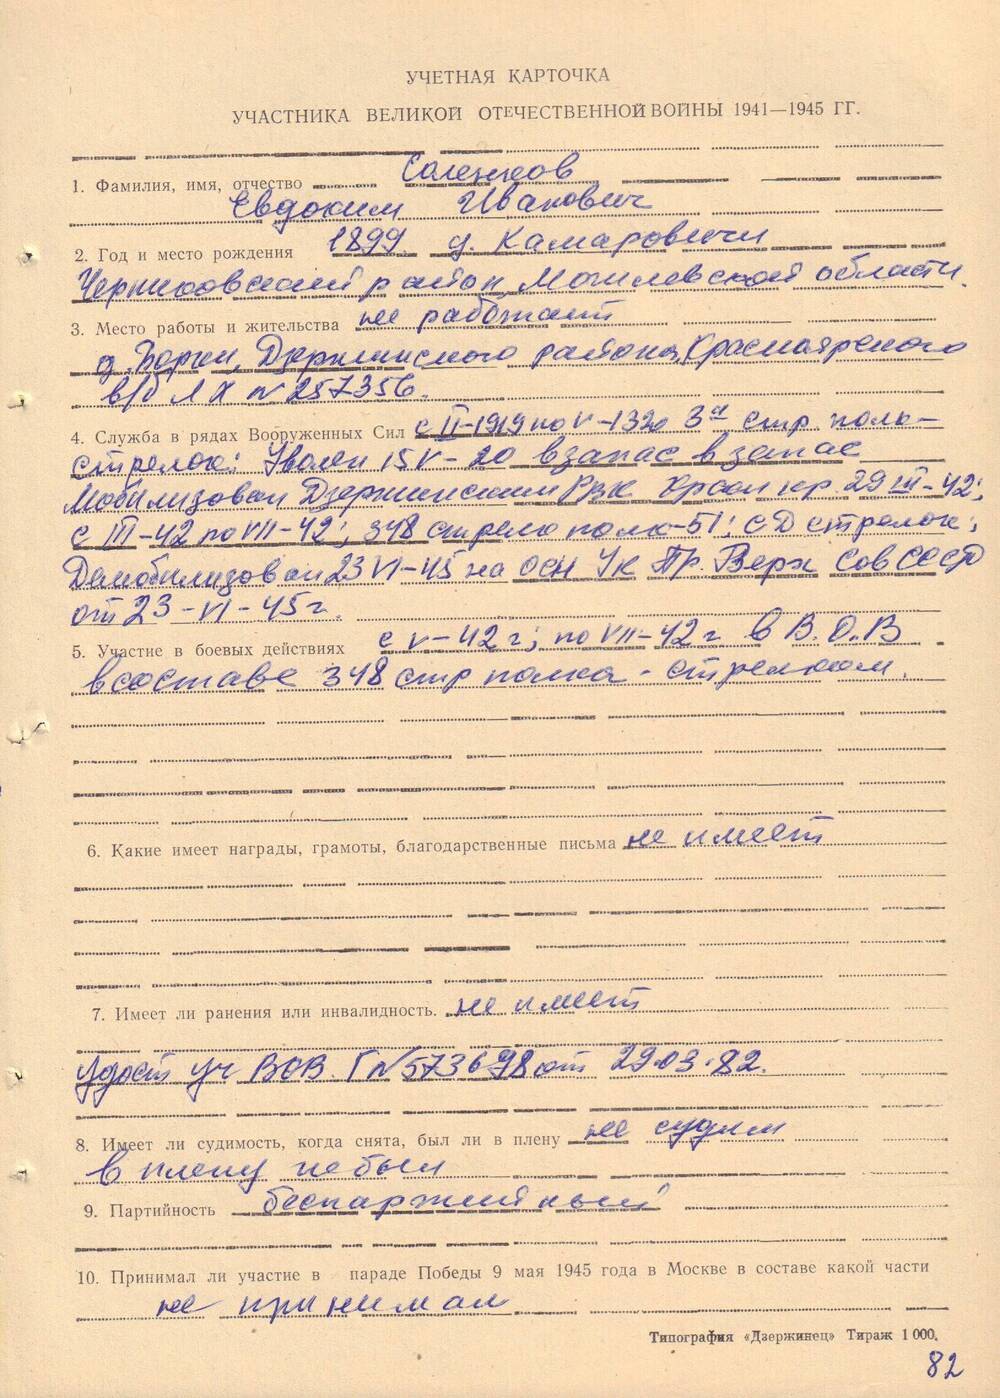 УЧЕТНАЯ КАРТОЧКА
УЧАСТНИКА ВЕЛИКОЙ ОТЕЧЕСТВЕННОЙ ВОЙНЫ 1941—1945 ГГ.
1. Фамилия, имя, отчество
Евдоким Иванович
2. Год и место рождения 1899 д. Камаровичи
район, Могилевской области.
3. Место работы и жительства не работает
д. Борки, Дзержинского района, Красноярского
в/б ЛХ № 257356.
4. Служба в рядах Вооруженных Сил с II-1919 по V-1920 3й стр. полк-
стрелок: Уволен 15 V-20 в запас в запас
Мобилизован Дзержинским Рвк кр. 29 III-42;
с III-42 по VII-42; 348 стрелк полк-51; СД стрелок;
Демобилизован 23 VI-45 на осн Ук Пр. Верх Сов СССР
от 23-VI-45 г.
5. Участие в боевых действиях с V-42 г; по VII-42 г в В.О.В
в составе 348 стр полка - стрелком.
6. Какие имеет награды, грамоты, благодарственные письма не имеет
7. Имеет ли ранения или инвалидность. не имеет
Удост уч ВОВ Г № 573698 от 29.03.82.
8. Имеет ли судимость, когда снята, был ли в плену не судим
в плену не был
9. Партийность беспартийный
10. Принимал ли участие в параде Победы 9 мая 1945 года в Москве в составе какой части
не принимал
Типография «Дзержинец» Тираж 1 000.
82